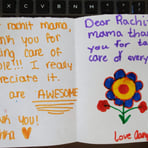 rachit mama,
nk you for
ing care of
ple!!! I really
reciate it.
are AWESOME
nk you!
Dear Rachit
mama than
you for ta
care of every
Love